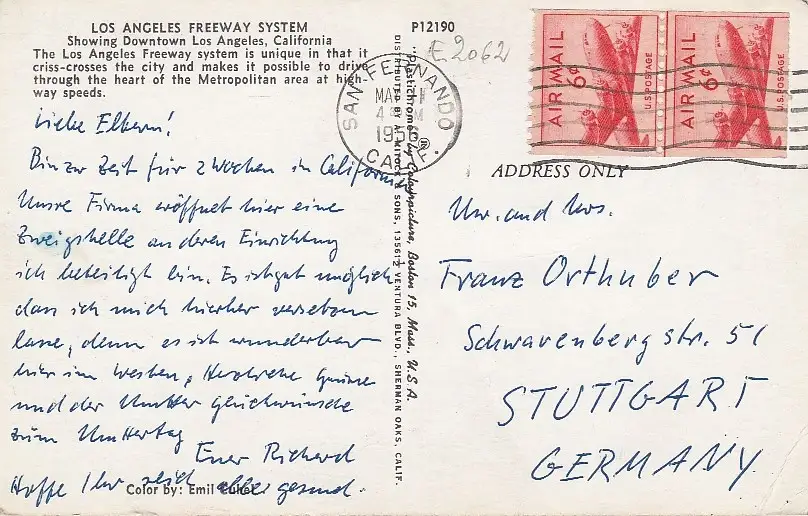 LOS ANGELES FREEWAY SYSTEM
Showing Downtown Los Angeles, California
The Los Angeles Freeway system is unique in that it
criss-crosses the city and makes it possible to drive
through the heart of the Metropolitan area at high-
way speeds.
Liebe Eltern!
Bin zur Zeit für 2 Wochen in California
Unsre Firma eröffnet hier eine
Zweigstelle an deren Einrichtung
ich beteiligt bin. Es ist gut möglich
dass ich mich hierher versetzen
lasse, denn es ist wunderbar
hier im Westen. Herzliche Grüsse
und der Mutter Glückwünsche
zum Muttertag
Euer Richard
Hoffe Ihr seid alle gesund.
Color by: Emil
P12190
E2062
"Plastichrome® by Colourpicture, Boston 15, Mass., U.S.A.
DISTRIBUTED BY A. MITOCK & SONS, 13561½ VENTURA BLVD., SHERMAN OAKS, CALIF.
SAN FERNANDO
CALIF.
AIR MAIL
6¢
U.S. POSTAGE
AIR MAIL
6¢
U.S. POSTAGE
ADDRESS ONLY
Mr. and Mrs.
Franz Orthuber
Schwarenbergstr. 51
STUTTGART
GERMANY